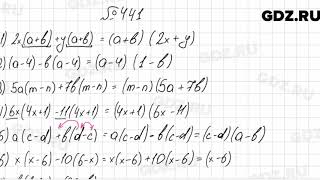 №441
GDZ.RU
1) 2x(a+b)+y(a+b)=(a+b)(2x+y)
2) (a-4)-b(a-4)=(a-4)(1-b)
3) 5a(m-n)+7b(m-n)=(m-n)(5a+7b)
4) 6x(4x+1)-11(4x+1)=(4x+1)(6x-11)
5) a(c-d)+b(d-c)=a(c-d)-b(c-d)=(c-d)(a-b)
6) x(x-6)-10(6-x)=x(x-6)+10(x-6)=(x-6)
GDZ.RU